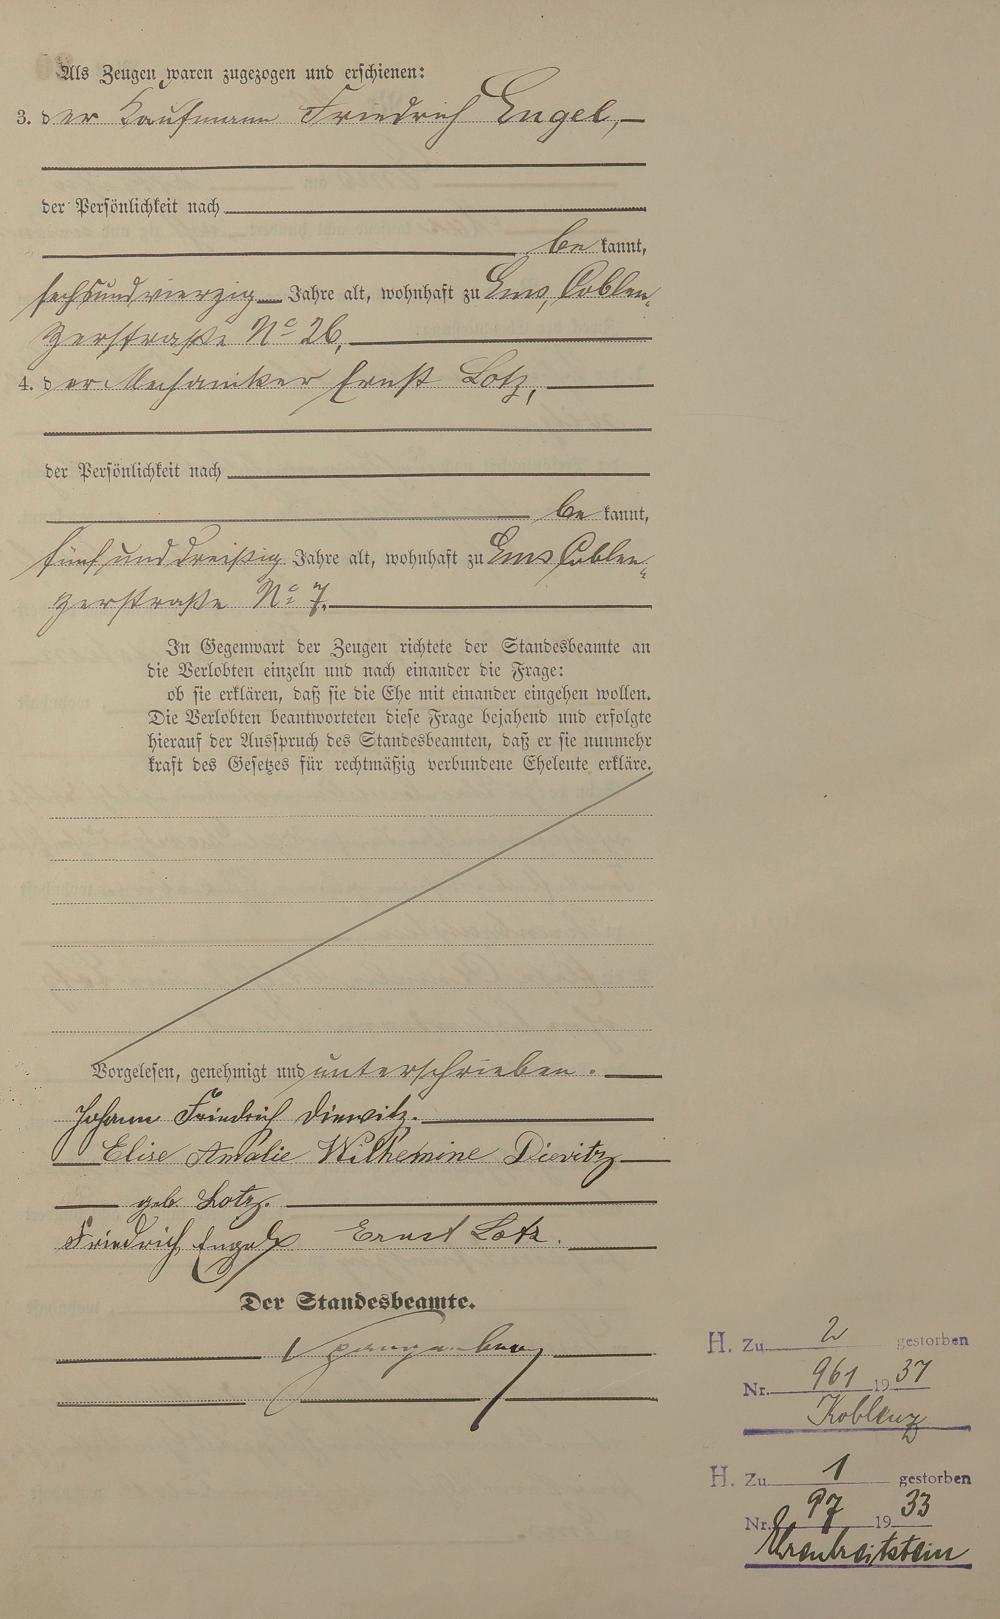 Als Zeugen waren zugezogen und erschienen:
3. der Kaufmann Friedrich Engel,
der Persönlichkeit nach
bekannt,
sechsundvierzig Jahre alt, wohnhaft zu Ems, Coblen-
zerstraße No 26,
4. der Mechaniker Ernst Lotz,
der Persönlichkeit nach
bekannt,
fünfunddreißig Jahre alt, wohnhaft zu Ems Coblen-
zerstraße No 7.
In Gegenwart der Zeugen richtete der Standesbeamte an
die Verlobten einzeln und nach einander die Frage:
ob sie erklären, daß sie die Ehe mit einander eingehen wollen.
Die Verlobten beantworteten diese Frage bejahend und erfolgte
hierauf der Ausspruch des Standesbeamten, daß er sie nunmehr
kraft des Gesetzes für rechtmäßig verbundene Eheleute erkläre.
Vorgelesen, genehmigt und unterschrieben.
Johann Friedrich Diewitz.
Elise Amalie Wilhemine Dievitz
geb. Lotz.
Friedrich Engel Ernst Lotz.
Der Standesbeamte.
H. Zu 2 gestorben
Nr. 961 1937
Koblenz
H. Zu 1 gestorben
Nr. 97 1933
Ehrenbreitstein